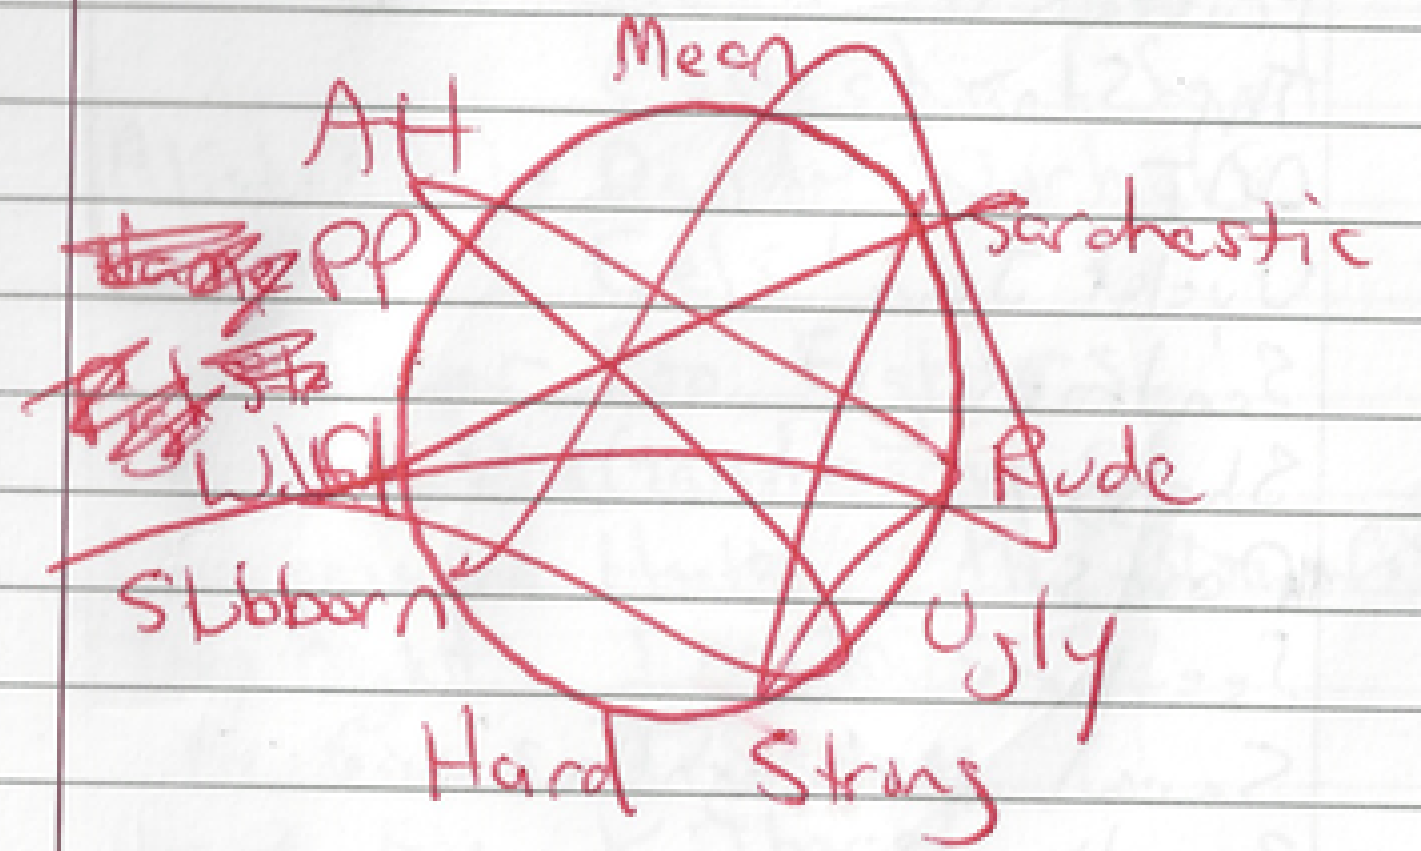 Mean
AH
Sarchestic
PP
Rude
Stubborn
Ugly
Hard
Strong